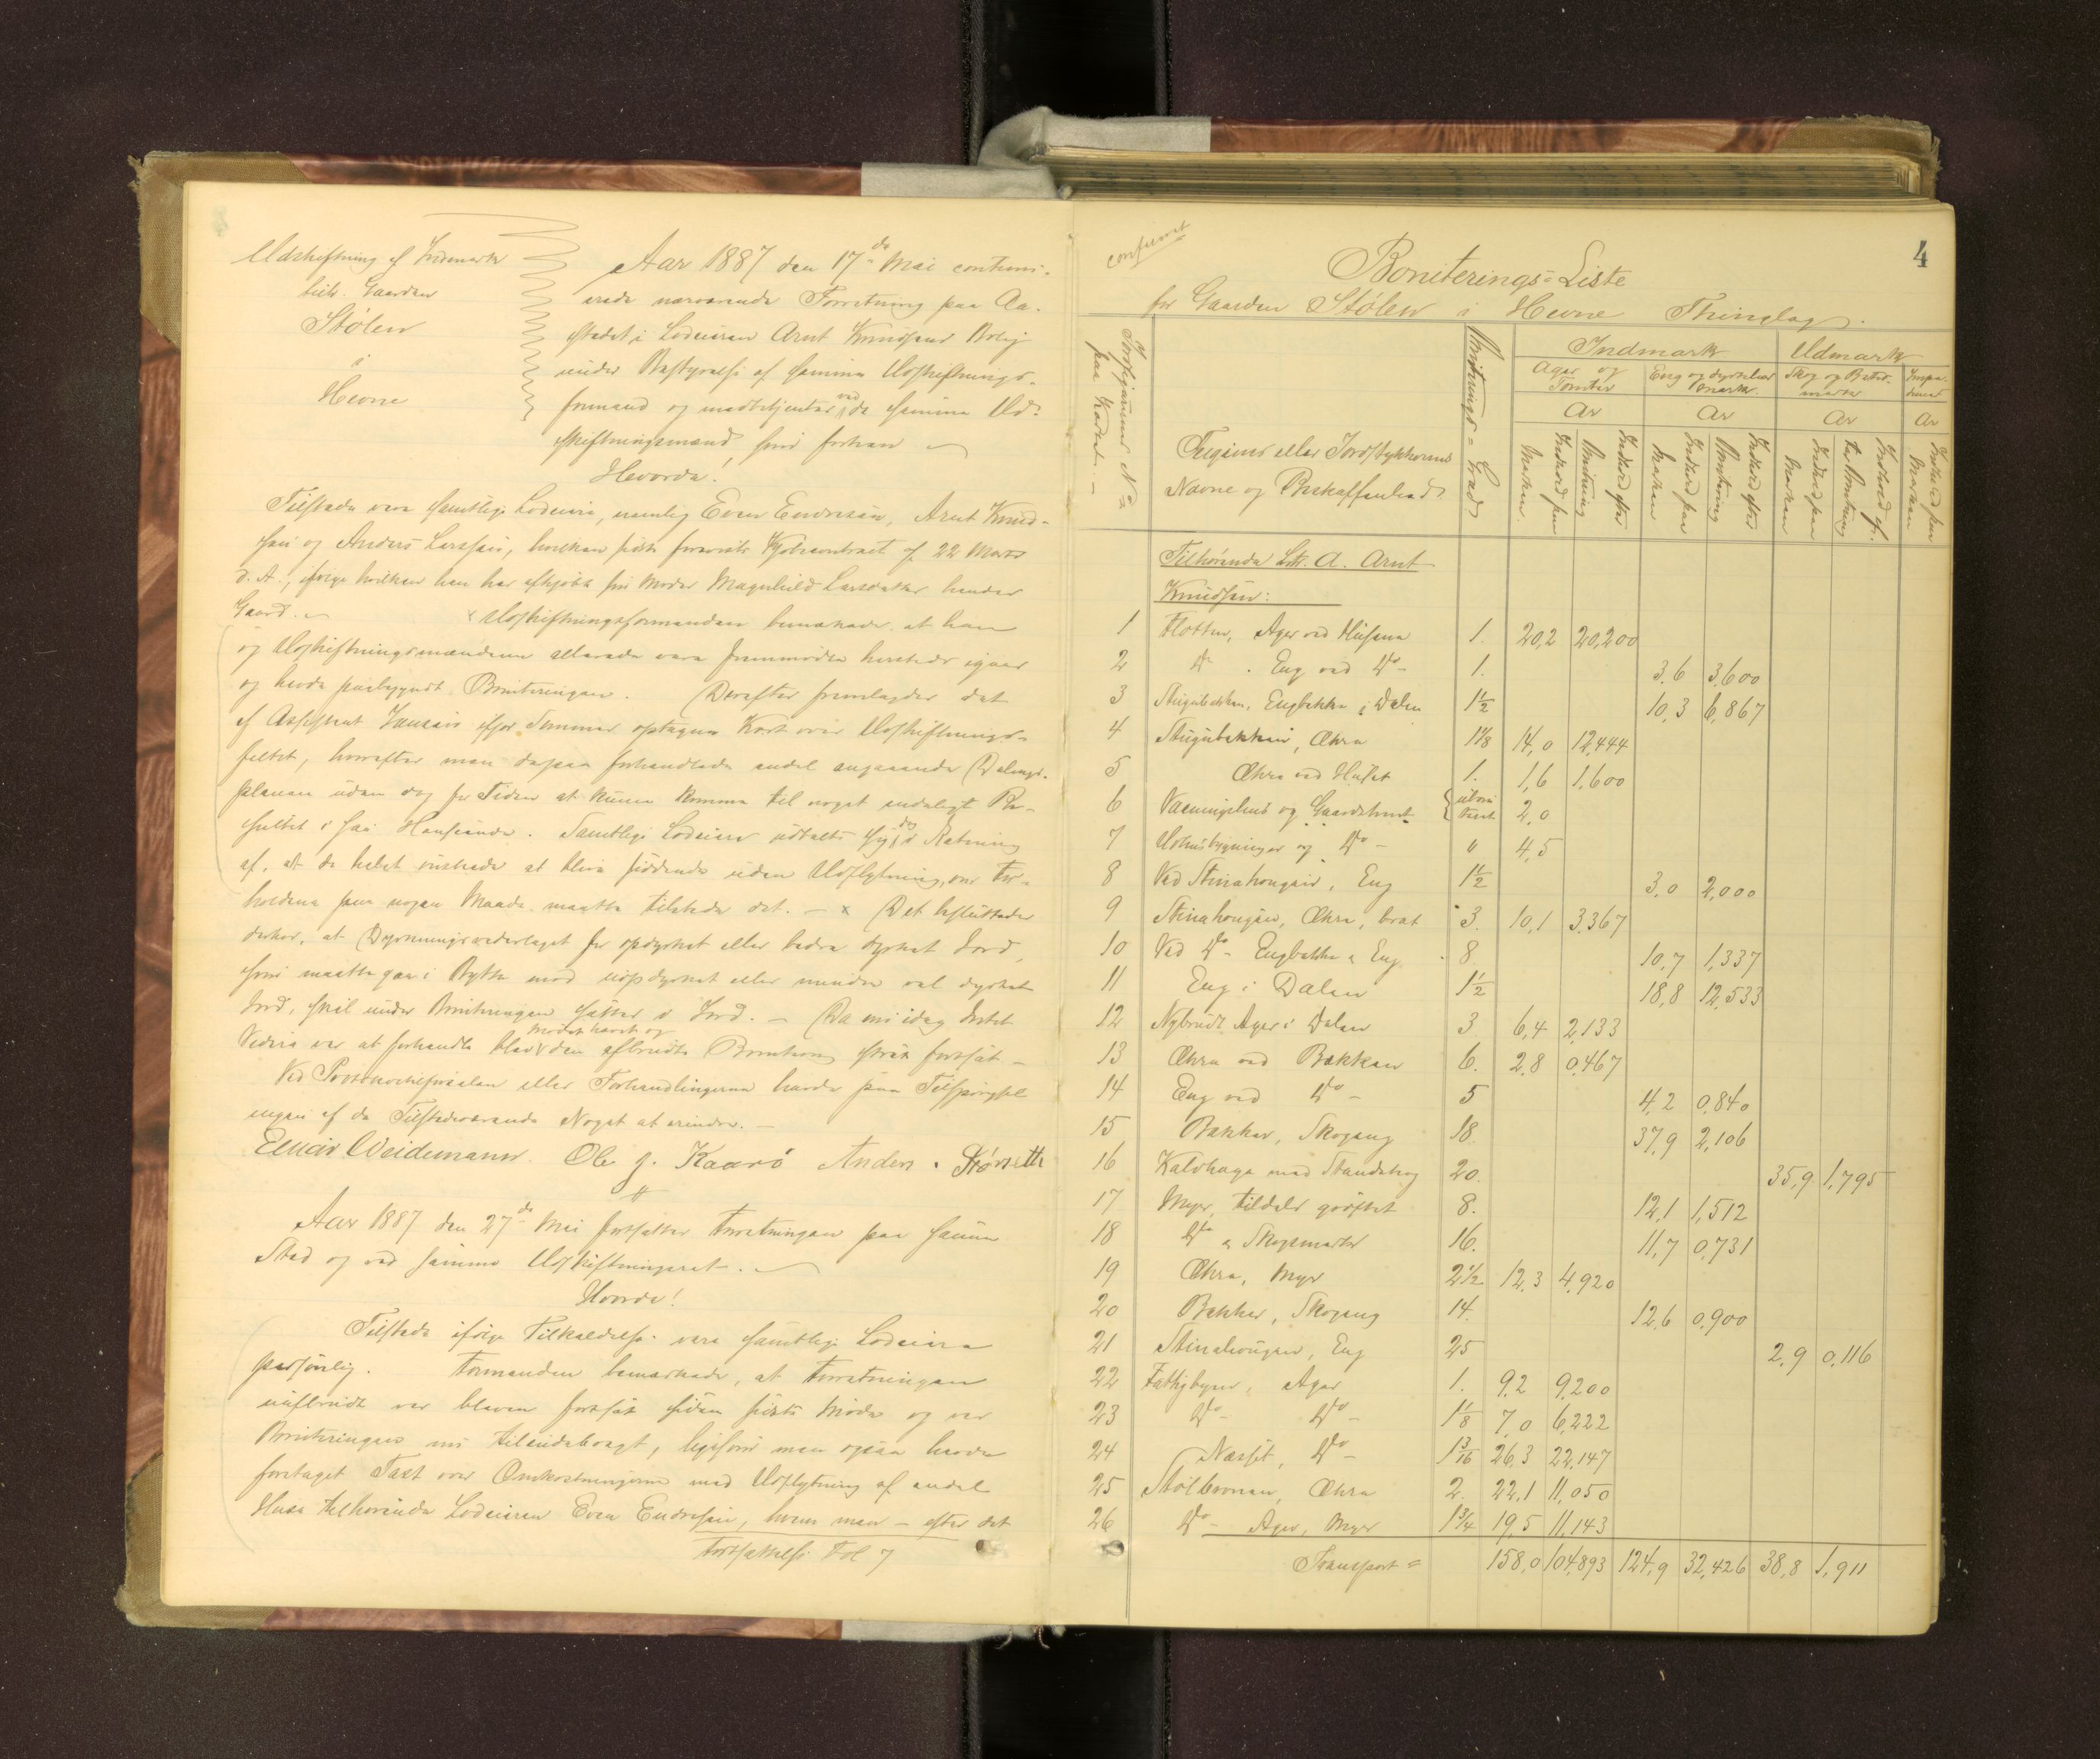 Udskiftning af Indmark
tilh. Gaarden
Stølen
i
Hevne
Aar 1887 den 17de Mai continu-
erede nærværende Forretning paa Aa-
stedet i Lodeieren Arnt Knudsens Bolig
under Bestyrelse af samme Udskiftnings-
formand og medbetjentes ved de samme Ud-
skiftningsmænd, som forhen
Hvorda!
Tilstede vare samtlige Lodeiere, nemlig Even Endresen, Arnt Knud-
sen og Anders Larssen, hvilken sidste foreviste Kjøbecontract af 22 Marts
d. A., ifølge hvilken han har afkjøbt sin Moder Magnhild Larsdatter hendes
Gaard. x Udskiftningsformanden bemærkede at han
og Udskiftningsmændene allerede vare fremmødte hersteds igaar
og havde paabegyndt Boniteringen. Derefter fremlagdes det
af Assistent Jensen ifjor Sommer optagne Kort over Udskiftnings-
feltet, hvorefter man dapaa forhandlede endel angaaende Delings-
planen uden dog for Tiden at kunne komme til noget endeligt Re-
sultat i saa Henseende. Samtlige Lodeiere udtalte sig dog i Retning
af, at de helst ønskede at blive siddende uden Udflytning, om For-
holdene paa nogen Maade maatte tilstede det. — x Det besluttedes
derhos, at Dyrkningsvederlaget for opdyrket eller bedre dyrket Jord,
som maatte gaa i Bytte mod uopdyrket eller mindre vel dyrket
Jord, skal under Boniteringen sættes i Jord. — Da nu idag Intet
Videre var at forhandle blev Mødet hævet og den afbrudte Bonitering strax fortsat —
Ved Protokoltilførselen eller Forhandlingerne havde paa Tilspørgsel
ingen af de Tilstedeværende Noget at erindre. —
Einar Weidemann. Ole J. Kaarø Anders . Størseth
Aar 1887 den 27de Mai fortsattes Forretningen paa samme
Sted og ved samme Udskiftningsret.
Hvorda!
Tilstede ifølge Tilkaldelse vare samtlige Lodeiere
personlig. Formanden bemærkede, at Forretningen
uafbrudt var bleven fortsat siden sidste Møde og var
Boniteringen nu tilendebragt, ligesom man ogsaa havde
foretaget Taxt over Omkostningerne med Udflytning af endel
Huse tilhørende Lodeieren Even Endresen, hvem man — efter det
Fortsættelse Fol 7
4
confereret
Boniterings-Liste
for Gaarden Stølen i Hevne Thinglag.
Jordstykkernes No
paa Kartet. —
Teigens eller Jordstykkernes
Navne og Beskaffenhed
Boniterings-Grad
Indmark
Udmark
Ager og Tomter
Eng og dyrkelses mark
Skog og Beitesmarke
Impedimenter
Ar Ar Ar Ar
Indhold paa Marken
Indhold efter Bonitering
Indhold paa Marken
Indhold efter Bonitering
Indhold paa Marken
Indhold ef-ter Bonitering
Indhold paa Marken
Tilhørende Litr. A. Arnt
Knudsen:
1 Flotten, Ager ved Husene 1. 20,2 20,200
2 Do . Eng ved Do - 1. 3,6 3,600
3 Stuguбakken, Engbakke i Dalen 1½ 10,3 6,867
4 Stugubakken, Ækre 1⅛ 14,0 12,444
5 Ækre ved Huset 1. 1,6 1,600
6 Vaaningshus og Gaardstomt 2,0
7 Udhusbygninger og Do - " 4,5
8 Ved Steinhougen, Eng 1½ 3,0 2,000
9 Steinhougen, Ækre, brat 3. 10,1 3,367
10 Ved Do - Engbakke & Eng 8 10,7 1,337
11 Eng i Dalen 1½ 18,8 12,533
12 Nybrudt Ager i Dalen 3 6,4 2,133
13 Ækre ved Bækken 6. 2,8 0,467
14 Eng ved Do - 5 4,2 0,840
15 Bakker, Skogeng 18 37,9 2,106
16 Kalvhage med Skog 20. 35,9 1,795
17 Myr, tildels grøftet 8. 12,1 1,512
18 Do & Skogsmark 16. 11,7 0,731
19 Ækre, Myr 2½ 12,3 4,920
20 Bakker, Skogeng 14. 12,6 0,900
21 Steinhougen, Eng 25 2,9 0,116
22 Fattigbyen, Ager 1. 9,2 9,200
23 Do - Do - 1⅛ 7,0 6,222
24 Næsset, Do - 1 3/16 26,3 22,147
25 Stølbronen, Ækre 2. 22,1 11,050
26 Do - Ager, Myr 1¾ 19,5 11,143
Transport = 158,0 104,893 124,9 32,426 38,8 1,911